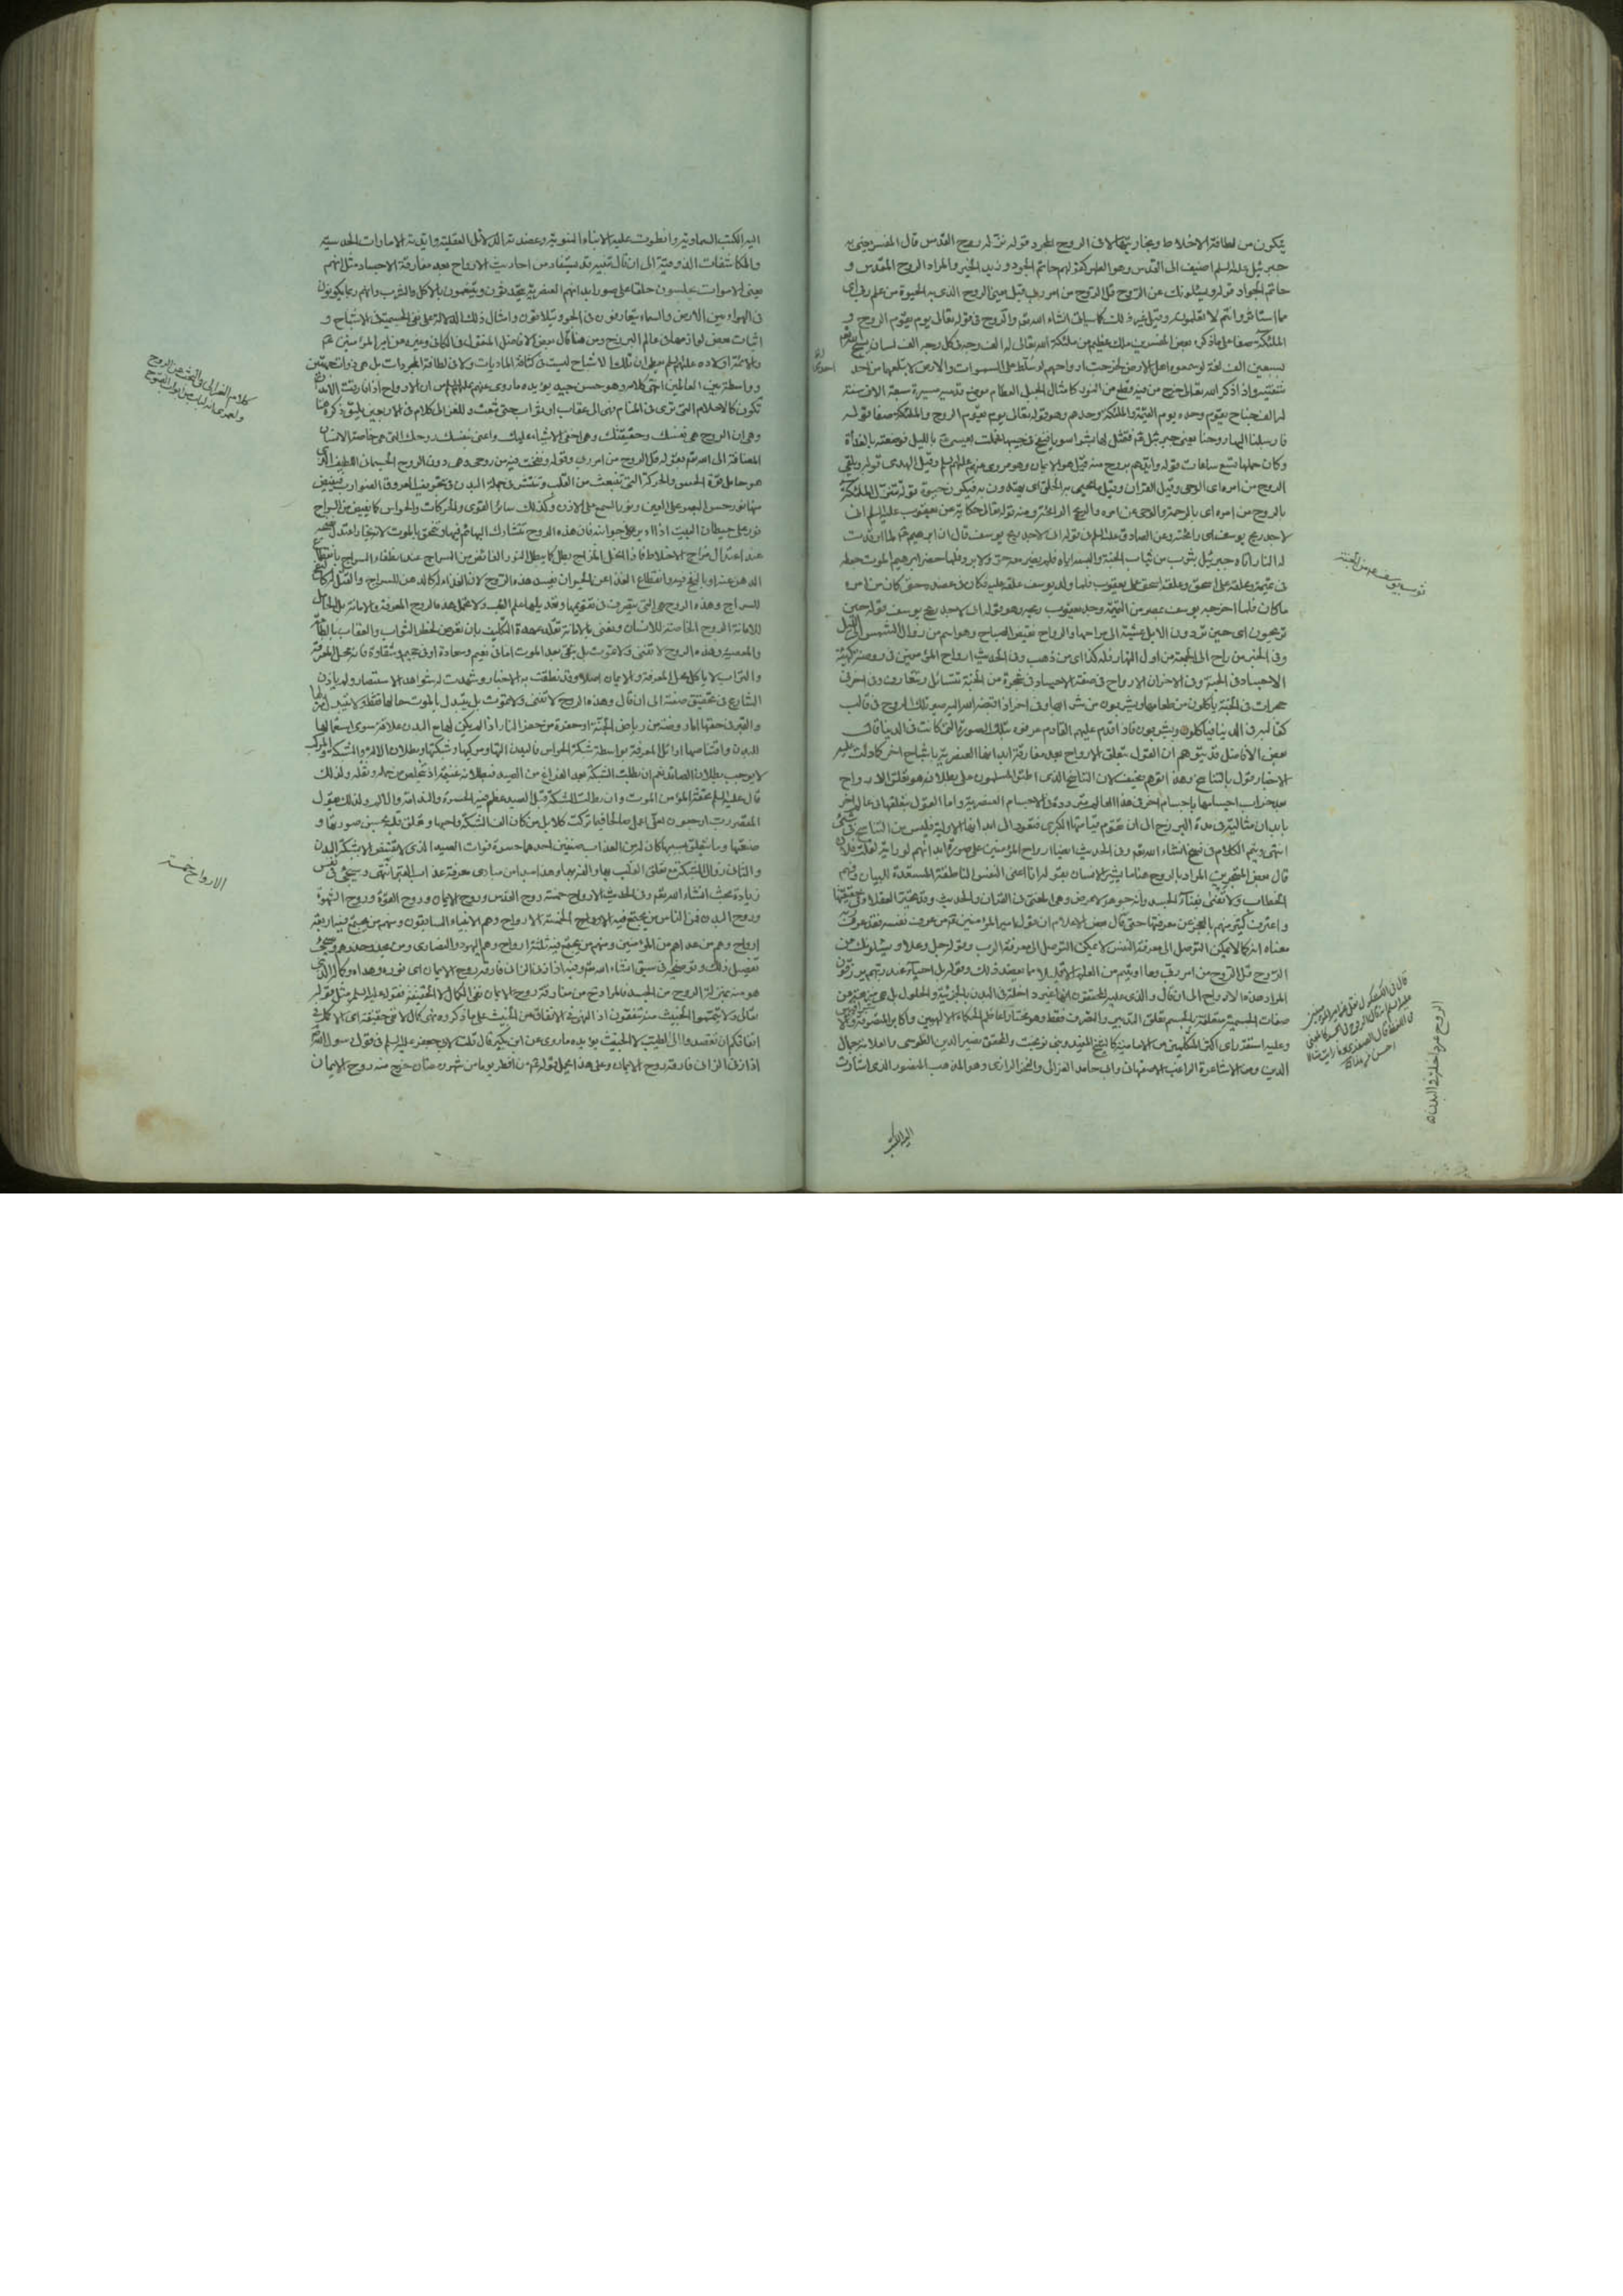 يتكون من لطافة الاخلاط وبخاريتها لا في الروح المجرد قوله نزله روح القدس قال المفسر يعني به
جبرئيل عليه السلم اضيف الى القدس وهو الطهر كقولهم حاتم الجود وزيد الخير والمراد الروح المقدس و
حاتم الجواد قوله ويسئلونك عن الروح قل الروح من امر ربي قيل يعني الروح الذي به الحيوة من علم ربي اي
مما استاثر وانتم لا تعلمونه وقيل غير ذلك كما سياتي انشاء الله تعالى والروح في قوله تعالى يوم يقوم الروح و
الملئكة صفا على ما ذكره بعض المفسرين ملك عظيم من ملئكة الله تعالى له الف وجه في كل وجه الف لسان يسبح الله
بسبعين الف لغة لو سمعوه اهل الارض لخرجت ارواحهم لو سلط على السموات والارض لابتلعهما من احد
شفتيه واذا ذكر الله تعالى خرج من فيه قطع من النور كامثال الجبل العظام موضع قدميه مسيرة سبعة الاف سنة
له الف جناح يقوم وحده يوم القيمة والملئكة وحدهم وهو قوله تعالى يوم يقوم الروح والملئكة صفا قوله
فارسلنا اليها روحنا يعني جبرئيل فتمثل لها بشرا سويا فنفخ في جيبها فحملت بعيسى بالليل فوضعته بالغداة
وكان حملها تسع ساعات قوله وايدهم بروح منه قيل هو الايمان وهو مروي عنهم عليهم السلم وقيل الهدى قوله يلقي
الروح من امره اي الوحي وقيل القران وقيل ما يحيى به الخلق اي يهتدون به فيكون حيوة قوله تنزل الملئكة
بالروح من امره اي بالرحمة والوحي عن امره والريح الرائحة ومنه قوله تعالى حكاية عن يعقوب عليه السلم اني
لاجد ريح يوسف اي رائحته وعن الصادق عليه السلم في قوله اني لاجد ريح يوسف قال ان ابرهيم لما اوقدت
له النار اتاه جبرئيل بثوب من ثياب الجنة والبسه اياه فلم يضره معه حر ولا برد فلما حضر ابرهيم الموت جعله
في تميمة وعلقه على اسحق وعلقه اسحق على يعقوب فلما ولد يوسف علقه عليه فكان في عضده حتى كان من امره
ما كان فلما اخرجه يوسف بمصر من التميمة وجد يعقوب ريحه وهو قوله اني لاجد ريح يوسف قوله حين
تريحون اي حين تردون الابل عشية الى مراحها والرواح نقيض الصباح وهو اسم من زوال الشمس الى الليل
وفي الخبر من راح الى الجمعة من اول النهار فله كذا اي من ذهب وفي الحديث ارواح المؤمنين في روضة كهيئة
الاجساد في الجنة وفي الاخر ان الارواح في صفة الاجساد في شجرة من الجنة تتسائل وتتعارف وفي اخر في
حجرات في الجنة ياكلون من طعامها ويشربون من شرابها وفي اخر اذا قبضه الله اليه صير تلك الروح في قالب
كقالبه في الدنيا فيأكلون ويشربون فاذا قدم عليهم القادم عرفوه بتلك الصورة التي كانت في الدنيا قال
بعض الافاضل قد يتوهم ان القول بتعلق الارواح بعد مفارقة ابدانها العنصرية باشباح اخر كما دلت عليه
الاخبار قول بالتناسخ وهذا توهم سخيف لان التناسخ الذي اطبق المسلمون على بطلانه هو تعلق الارواح
بعد خراب اجسامها باجسام اخر في هذا العالم مترددة في الاجسام العنصرية واما القول بتعلقها في عالم اخر
بابدان مثالية في مدة البرزخ الى ان تقوم قيامتها الكبرى فتعود الى ابدانها الاولية فليس من التناسخ في شئ
انتهى ويتم الكلام في نسخ انشاء الله تعالى وفي الحديث ايضا ارواح المؤمنين على صورة ابدانهم لو رايته لقلت فلان
قال بعض المتبحرين المراد بالروح هنا ما يشير الانسان بقوله انا اعني النفس الناطقة المستعدة للبيان وفهم
الخطاب ولا تفنى بفناء الجسد وانه جوهر لا عرض وهي المعني في القران والحديث وقد تحير العقلاء في حقيقتها
واعترف كثير منهم بالعجز عن معرفتها حتى قال بعض الاعلام ان قول امير المؤمنين من عرف نفسه فقد عرف ربه
معناه انه كما لا يمكن التوصل الى معرفة النفس لا يمكن التوصل الى معرفة الرب وقوله جل وعلا ويسئلونك عن
الروح قل الروح من امر ربي وما اوتيتم من العلم الا قليلا مما يعضد ذلك وقوله بل احياء عند ربهم يرزقون
المراد هذه الارواح الى ان قال والذي عليه المحققون انها غير داخلة في البدن بالجزئية والحلول بل هي بريئة عن
صفات الجسمية متعلقة بالجسم تعلق التدبير والتصرف فقط وهو مختار اعاظم الحكماء الالهيين واكابر المتصوفة
وعليه استقر راي اكثر المتكلمين من الامامية كالشيخ المفيد وبني نوبخت والمحقق نصير الدين الطوسي والعلامة جمال
الدين ومن الاشاعرة الراغب الاصفهاني وابي حامد الغزالي والفخر الرازي وهو المذهب المنصور الذي اشارت
اليه الكتب
ثوب يوسف من الجنة
الروح غير داخلة في البدن
اليه الكتب السماوية وانطوت عليه الانباء النبوية وعضدته الدلائل العقلية وايدته الامارات الحدسية
والمكاشفات الذوقية الى ان قال تنبيه قد يستفاد من احاديث الارواح بعد مفارقة الاجساد مثل انهم
يعني الاموات يجلسون حلقا على صور ابدانهم العنصرية يتحدثون ويتنعمون بالاكل والشرب وانهم ربما يكونون
في الهواء بين الارض والسماء يتعارفون في الجو ويتلاقون وامثال ذلك الدلالة على نفي الجسمية في الاشباح و
اثبات بعض لوازمها في عالم البرزخ ومن هنا قال بعض الافاضل المنقول في الكافي وغيره عن امير المؤمنين
والائمة من اولاده عليهم السلم يعطي ان تلك الاشباح ليست في كثافة الماديات ولا في لطافة المجردات بل هي ذوات جهتين
وواسطة بين العالمين انتهى كلامه وهو حسن جيد يؤيده ما روي عنهم عليهم السلم من ان الارواح اذا فارقت الابدان
تكون كالاحلام التي ترى في المنام فهي الى عقاب او ثواب حتى تبعث وللغزالي كلام في الاربعين يليق ذكره هنا
وهو ان الروح هي نفسك وحقيقتك وهي اخفى الاشياء عليك واعني بنفسك روحك التي هي خاصة الانسان
المضافة الى الله تعالى بقوله قل الروح من امر ربي وقوله ونفخت فيه من روحي وهي دون الروح الجسماني اللطيف الذي
هو حامل قوة الحس والحركة التي تنبعث من القلب وتنتشر في جملة البدن في تجويف العروق الضوارب فيفيض
منها نور حس البصر على العين ونور السمع على الاذن وكذلك سائر القوى والحركات والحواس كما يفيض من السراج
نور على حيطان البيت اذا ادير على جوانبه فان هذه الروح تتشارك البهائم فيها وتنمحق بالموت لانه بخار اعتدل نضجه
عند اعتدال مزاج الاخلاط فاذا انحل المزاج بطل كما يبطل النور الفائض من السراج عند انطفاء السراج بانقطاع
الدهن عنه او بالنفخ فيه وانقطاع الغذاء عن الحيوان يفسد هذه الروح لان الغذاء له كالدهن للسراج والقتل له كالنفخ
للسراج وهذه الروح هي التي يتصرف في تقويمها وتعديلها علم الطب ولا تحمل هذه الروح المعرفة والامانة بل الحامل
للامانة الروح الخاصة للانسان ونعني بالامانة تقلد عهدة التكليف بان تعرض لخطر الثواب والعقاب بالطاعة
والمعصية وهذه الروح لا تفنى ولا تموت بل تبقى بعد الموت اما في نعيم وسعادة او في جحيم وشقاوة فانه محل المعرفة
والتراب لا ياكل محل المعرفة والايمان اصلا وقد نطقت به الاخبار وشهدت له شواهد الاستبصار ولم ياذن
الشارع في تحقيق صفته الى ان قال وهذه الروح لا تفنى ولا تموت بل يتبدل بالموت حالها فقط ولا يتبدل منزلها
والقبر في حقها اما روضة من رياض الجنة او حفرة من حفر النار اذ لم يكن لها مع البدن علاقة سوى استعمالها
البدن واقتناصها اوائل المعرفة بواسطة شبكة الحواس فالبدن التها ومركبها وشبكتها وبطلان الالة والشبكة والمركب
لا يوجب بطلان الصائد نعم ان بطلت الشبكة بعد الفراغ من الصيد فبطلانه غنيمة اذ يتخلص من حمله وثقله ولذلك
قال عليه السلم تحفة المؤمن الموت وان بطلت الشبكة قبل الصيد عظم فيه الحسرة والندامة والالم ولذلك يقول
المقصر رب ارجعون لعلي اعمل صالحا فيما تركت كلا بل من كان الف الشبكة واحبها وتعلق قلبه بحسن صورتها و
صنعتها وما يتعلق بسببها كان له من العذاب ضعفين احدهما حسرة فوات الصيد الذي لا يقتنص الا بشبكة البدن
والثاني زوال الشبكة مع تعلق القلب بها والفه بها وهذا مبدا من مبادي معرفة عذاب القبر انتهى وسيجئ في نفس
زيادة بحث انشاء الله تعالى وفي الحديث الارواح خمسة روح القدس وروح الايمان وروح القوة وروح الشهوة
وروح البدن فمن الناس من يجتمع فيه الارواح الخمسة الارواح وهم الانبياء السابقون ومنهم من يجتمع فيه اربعة
ارواح وهم من عداهم من المؤمنين ومنهم من يجتمع فيه ثلثة ارواح وهم اليهود والنصارى ومن يحذو حذوهم وسيجئ
تفصيل ذلك وتوضيحه في سبق انشاء الله تعالى وفيه اذا زنى الزاني فارقه روح الايمان اي نوره وهداه وكماله الذي
هو منه بمنزلة الروح من الجسد فالمراد من مفارقة روح الايمان نفي الكمال لا الحقيقة فقوله عليه السلم مثل قوله
تعالى ولا تيمموا الخبيث منه تنفقون اذ النهي في الانفاق من الخبيث على ما ذكروه نهي كمال لا نفي حقيقة اي الاكمل في
انفاقكم ان تقصدوا الى الطيب لا الخبيث يؤيده ما روي عن ابن بكير قال قلت لابي جعفر عليه السلم في قول رسول الله
اذا زنى الزاني فارقه روح الايمان وعلى هذا يحمل قوله من افطر يوما من شهر رمضان خرج منه روح الايمان
كلام الغزالي في البحث عن الروح
الارواح خمسة